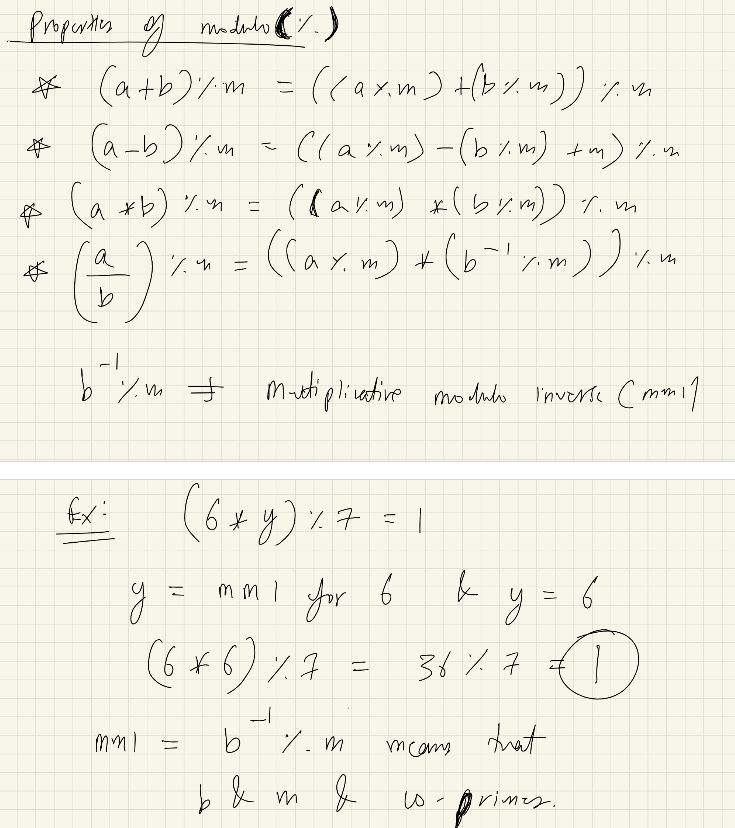 Properties of modulo (%)
* (a+b)%m = ((a%m) + (b%m)) % m
* (a-b)%m = ((a%m) - (b%m) + m) % m
* (a*b) % m = ((a%m) * (b%m)) % m
* (a/b) % m = ((a%m) * (b⁻¹ % m)) % m
b⁻¹ % m ⇒ Multiplicative modulo inverse (mmI)
Ex: (6 * y) % 7 = 1
y = mmI for 6 & y = 6
(6 * 6) % 7 = 36 % 7 = 1
mmI = b⁻¹ % m means that
b & m & co-primes.